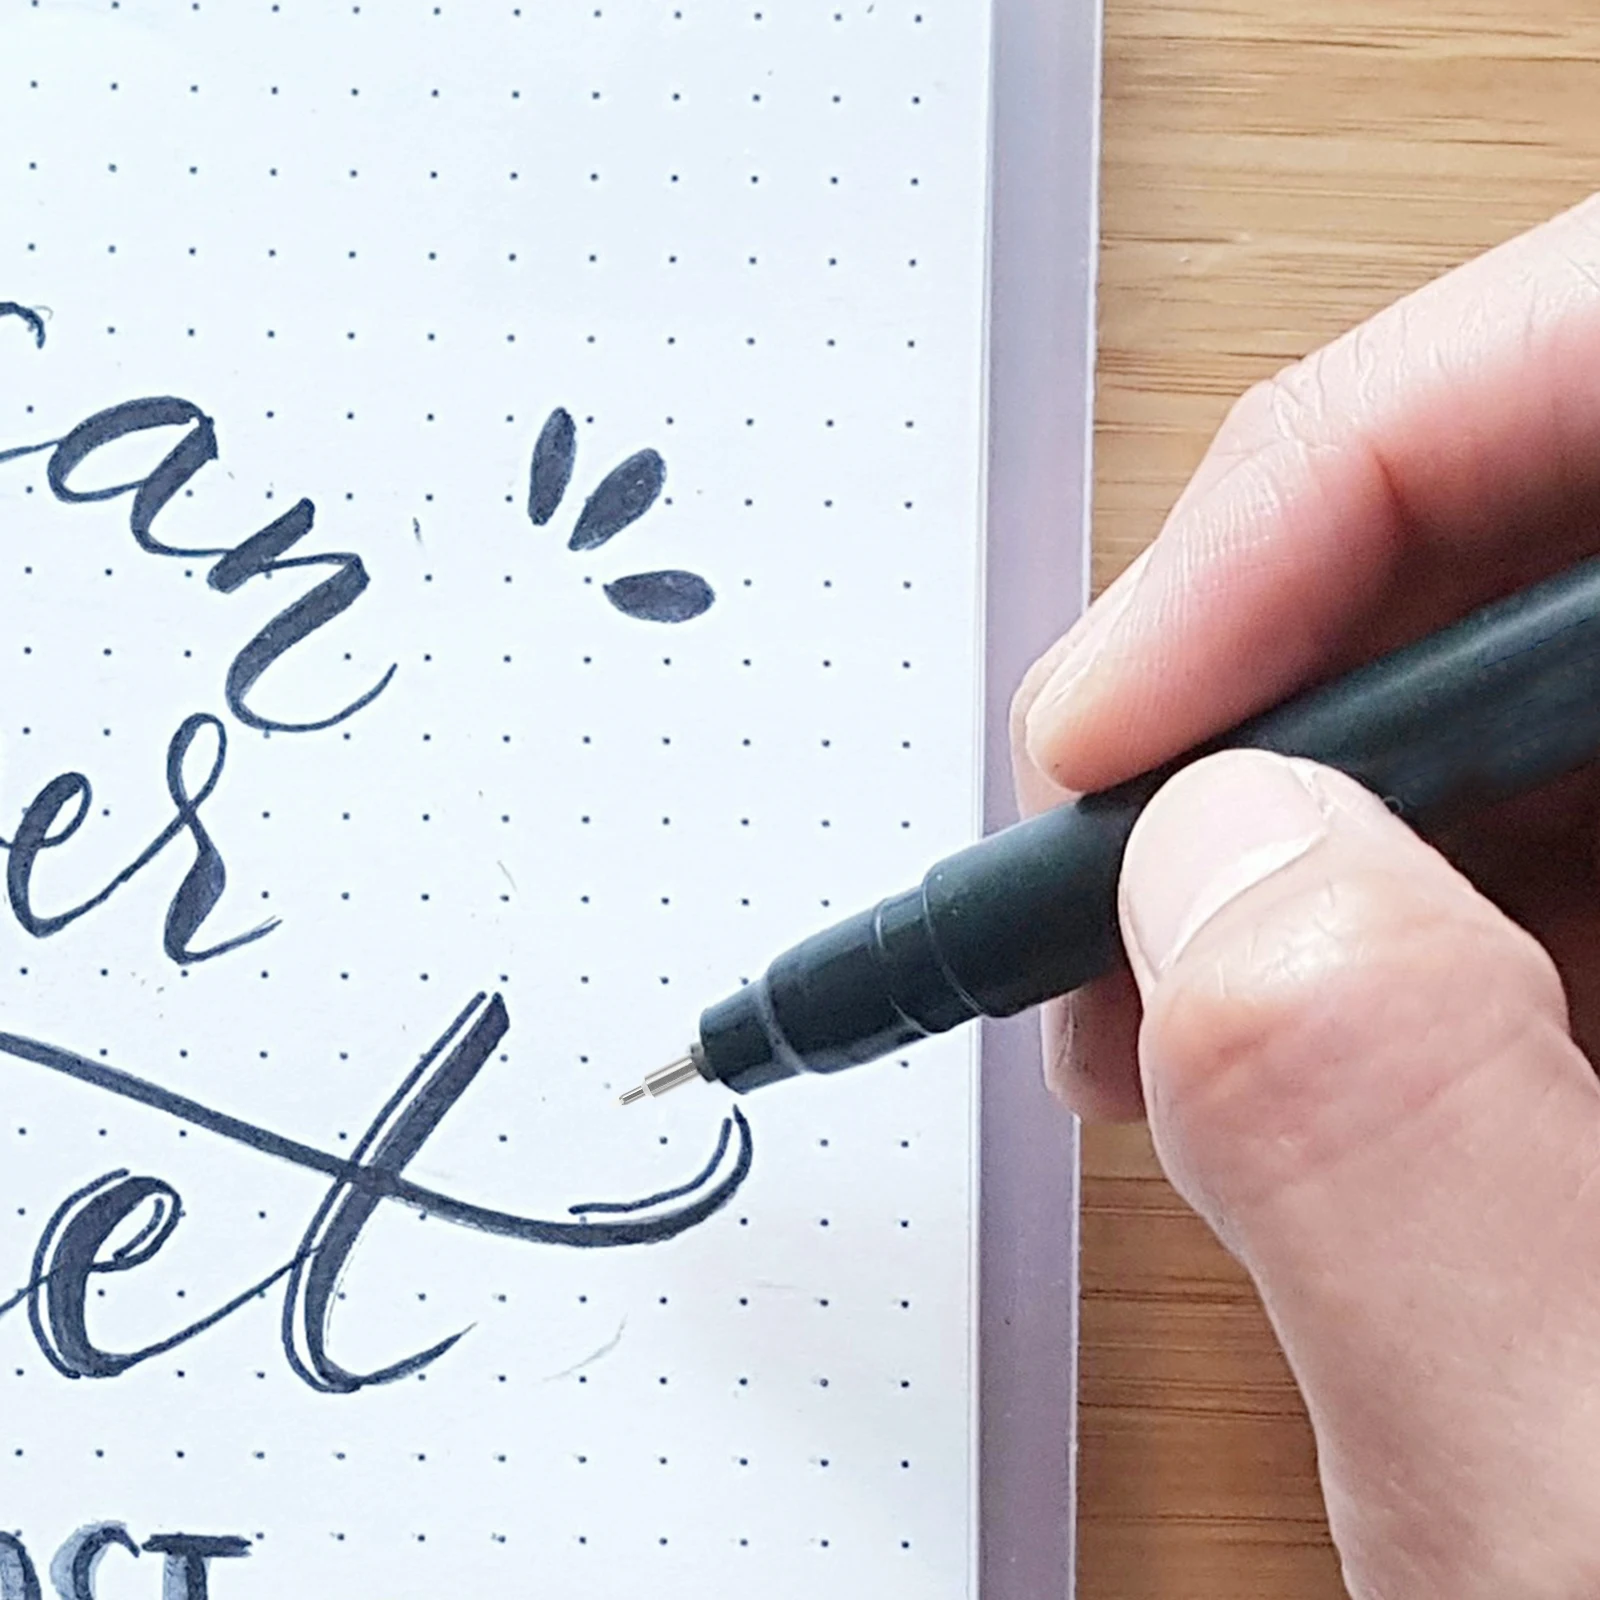 can
er
et
OST